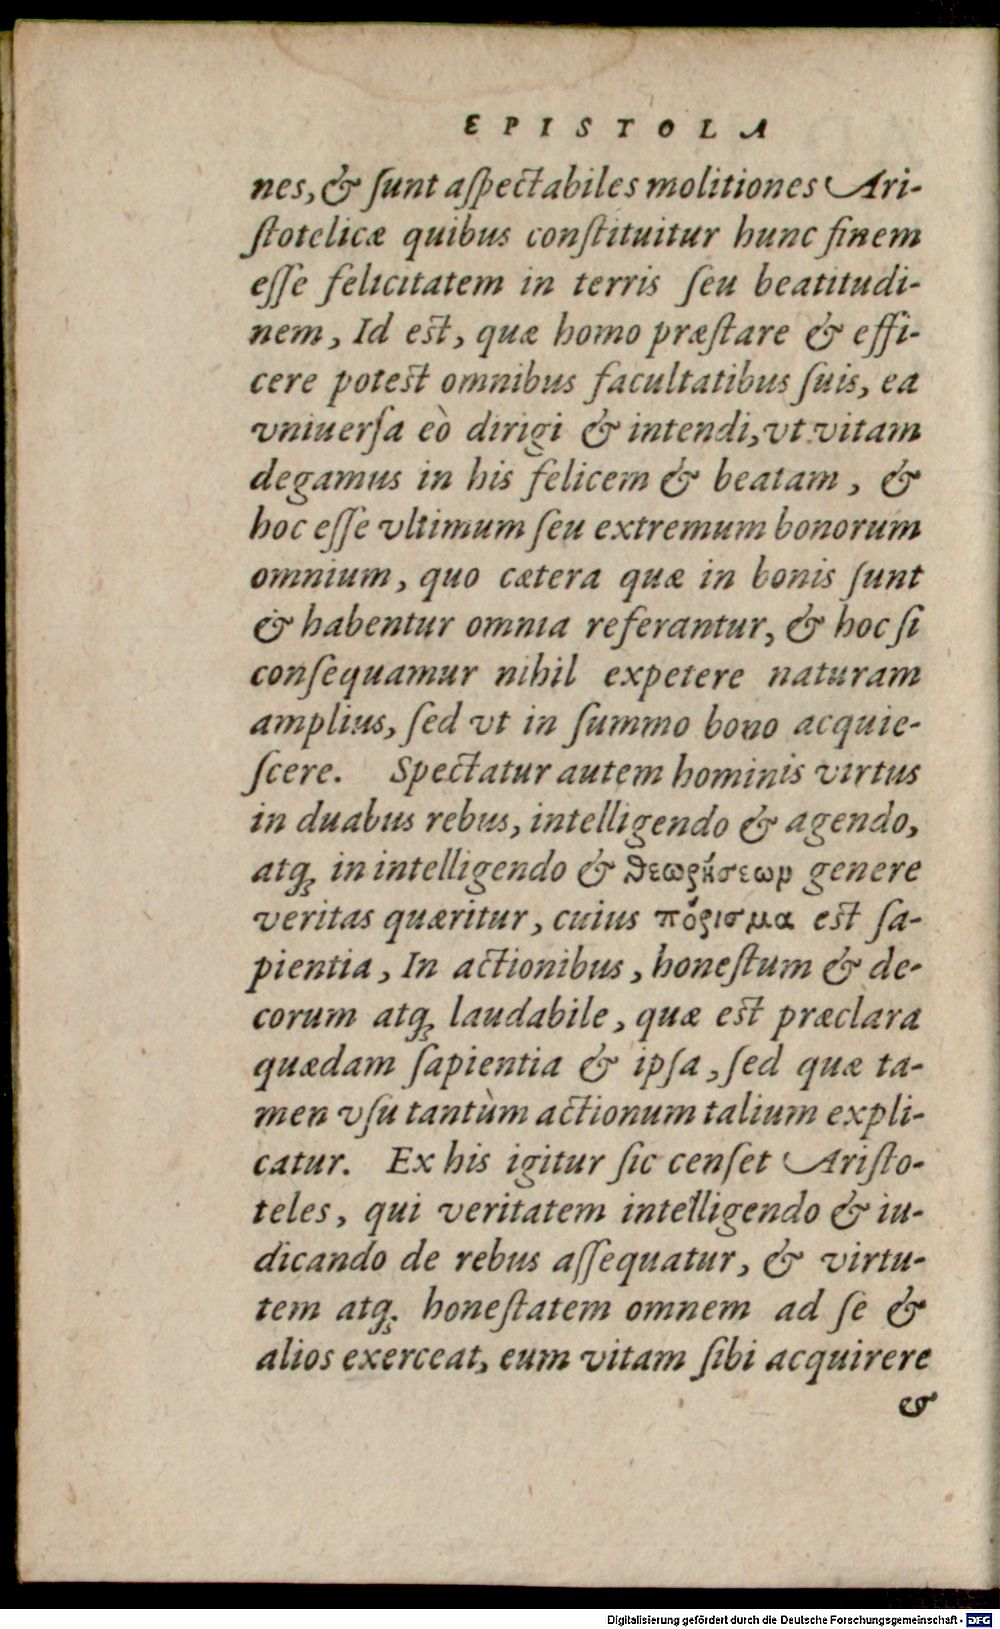 EPISTOLA
nes, & ſunt aſpectabiles molitiones Ari-
ſtotelicæ quibus conſtituitur hunc finem
eſſe felicitatem in terris ſeu beatitudi-
nem, Id est, quæ homo præſtare & effi-
cere potest omnibus facultatibus ſuis, ea
vniuerſa eò dirigi & intendi, vt vitam
degamus in his felicem & beatam, &
hoc eſſe vltimum ſeu extremum bonorum
omnium, quo cætera quæ in bonis ſunt
& habentur omnia referantur, & hoc ſi
conſequamur nihil expetere naturam
amplius, ſed vt in ſummo bono acquie-
ſcere. Spectatur autem hominis virtus
in duabus rebus, intelligendo & agendo,
atq; in intelligendo & θεωρήσεωρ genere
veritas quæritur, cuius πόρισμα est ſa-
pientia, In actionibus, honeſtum & de-
corum atq; laudabile, quæ est præclara
quædam ſapientia & ipſa, ſed quæ ta-
men vſu tantùm actionum talium expli-
catur. Ex his igitur ſic cenſet Ariſto-
teles, qui veritatem intelligendo & iu-
dicando de rebus aſſequatur, & virtu-
tem atq; honeſtatem omnem ad ſe &
alios exerceat, eum vitam ſibi acquirere
&
Digitalisierung gefördert durch die Deutsche Forschungsgemeinschaft - DFG